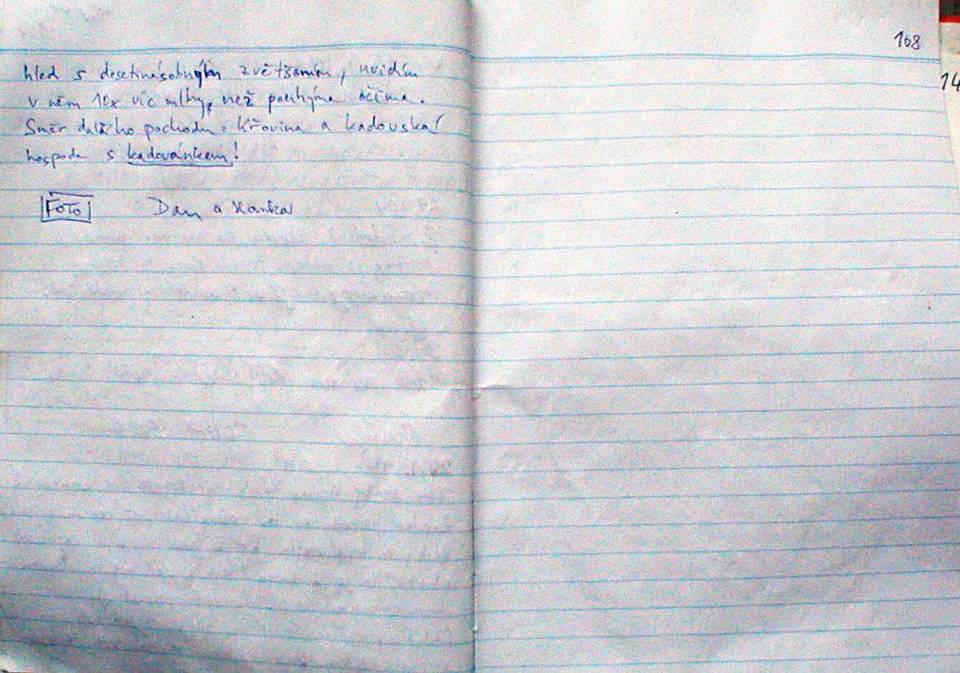 hled s desetinásobným zvětšením, uvidím
v něm 10x víc mlhy, než pouhýma očima.
Směr dalšího pochodu: Křovina a kadovská
hospoda s kadovánkem!
FOTO Dan a Hanka
168
14